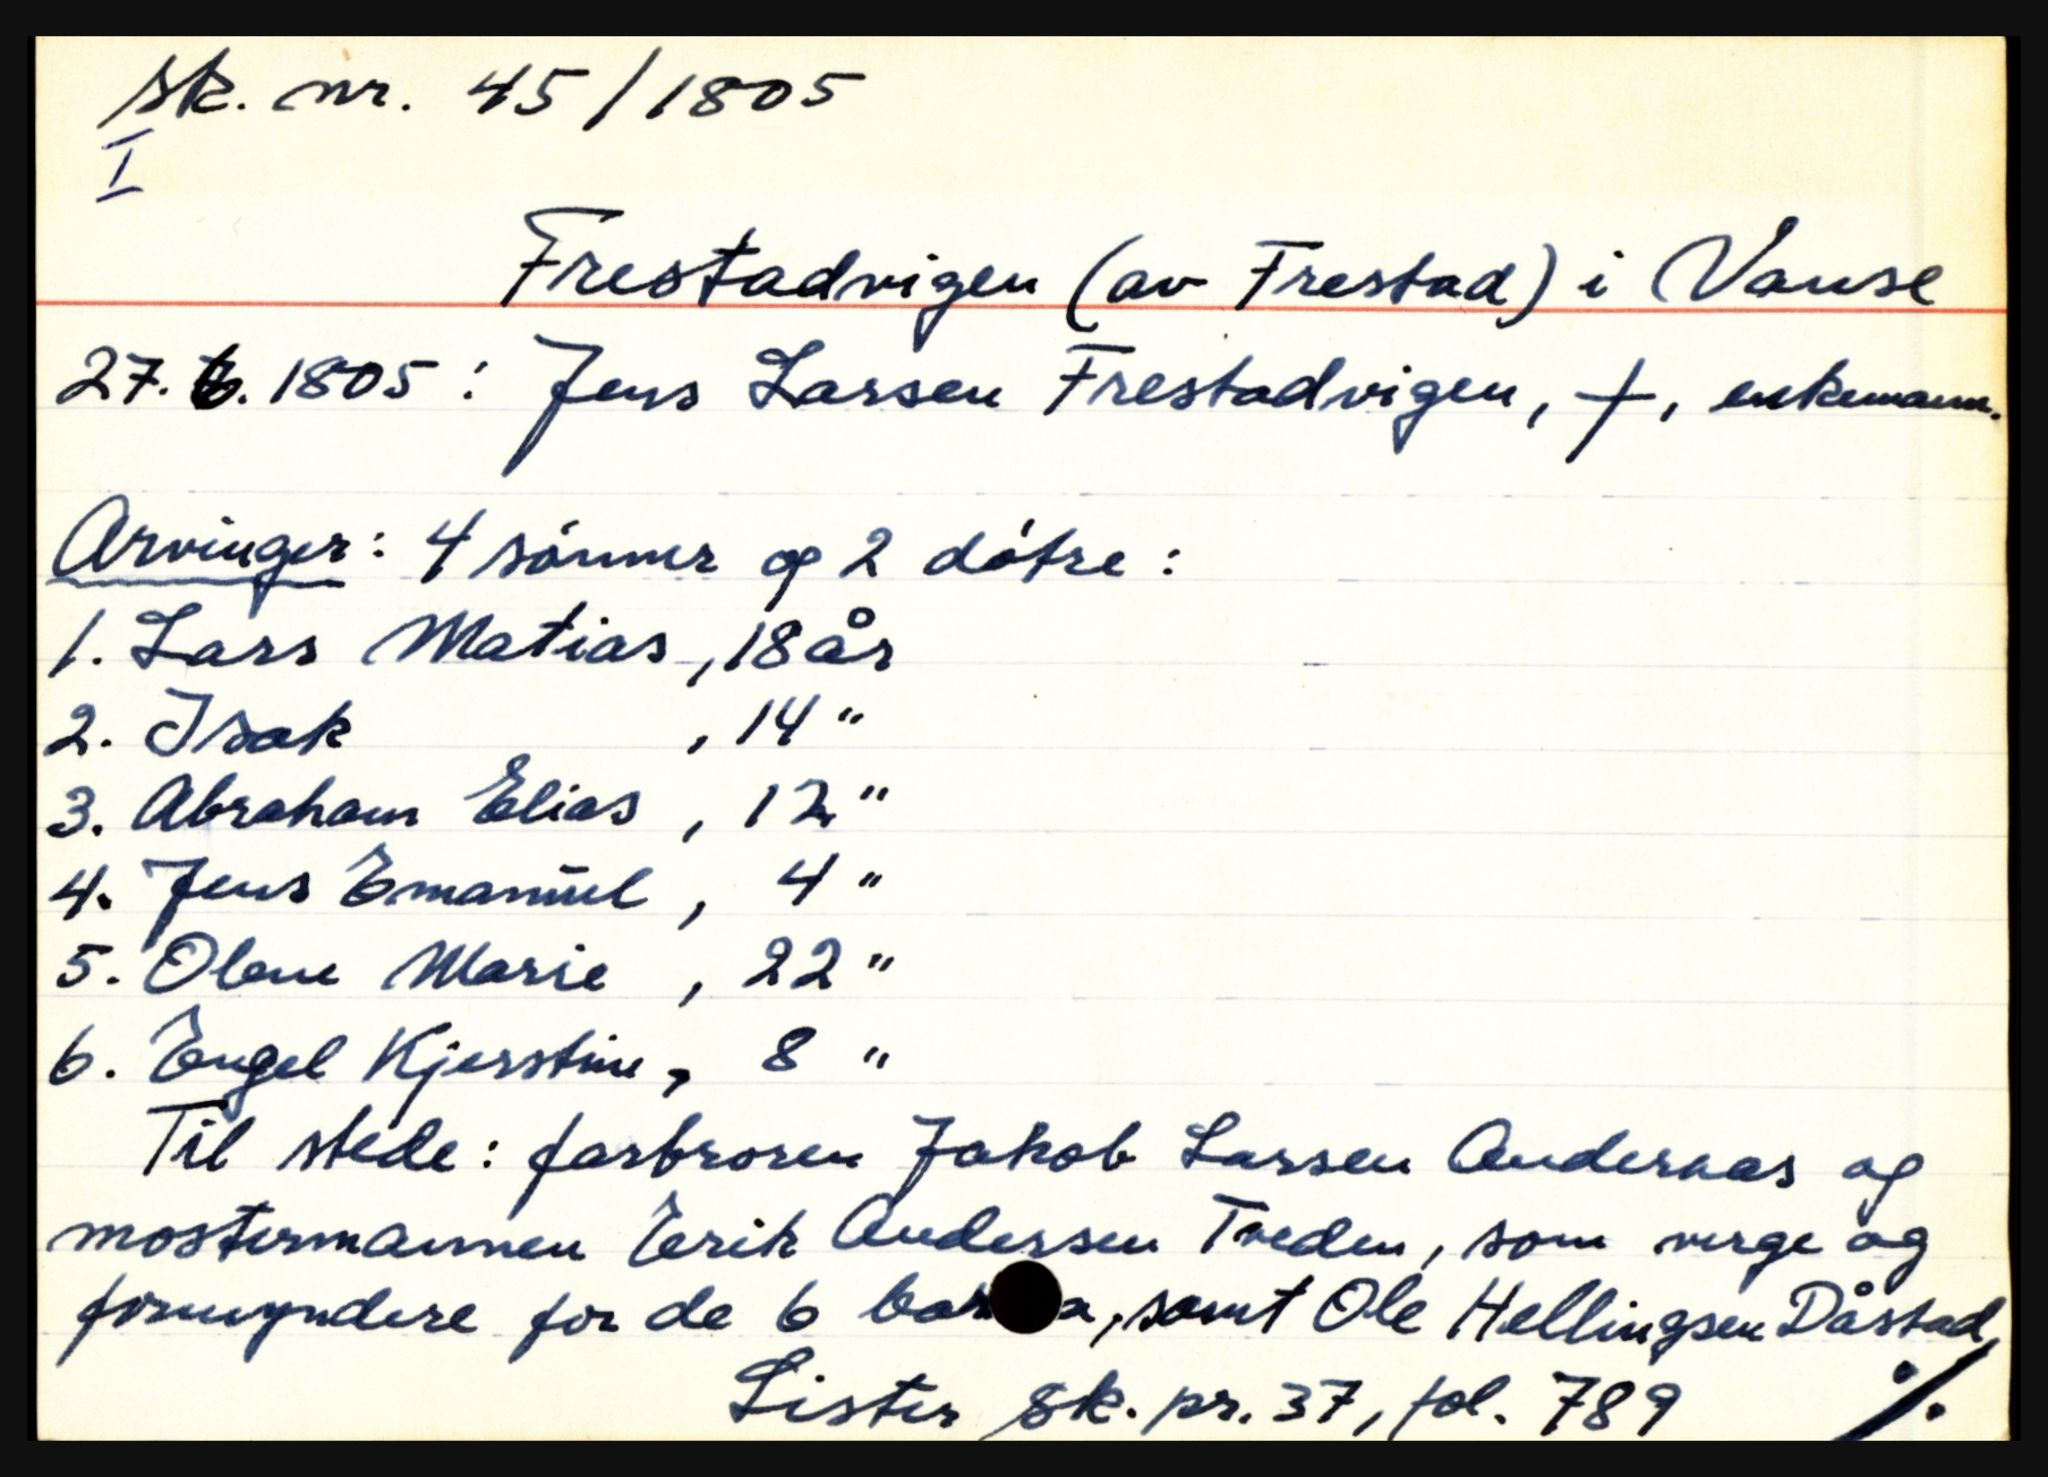 sk. nr. 45/1805
I
Frestadvigen (av Frestad) i Vanse
27. 6. 1805: Jens Larsen Frestadvigen, †, enkemann.
Arvinger: 4 sónner og 2 dótre:
1. Lars Matias, 18 år
2. Isak , 14 "
3. Abraham Elias , 12 "
4. Jens Emanuel , 4 "
5. Olene Marie , 22 "
6. Engel Kjerstine, 8 "
Til stede: farbroren Jakob Larsen Andernas og
mostermannen Erik Andersen Treden, som verge og
formyndere for de 6 barna, samt Ole Hellingsen Dåstad,
Lister sk. pr. 37, fol. 789 ./.